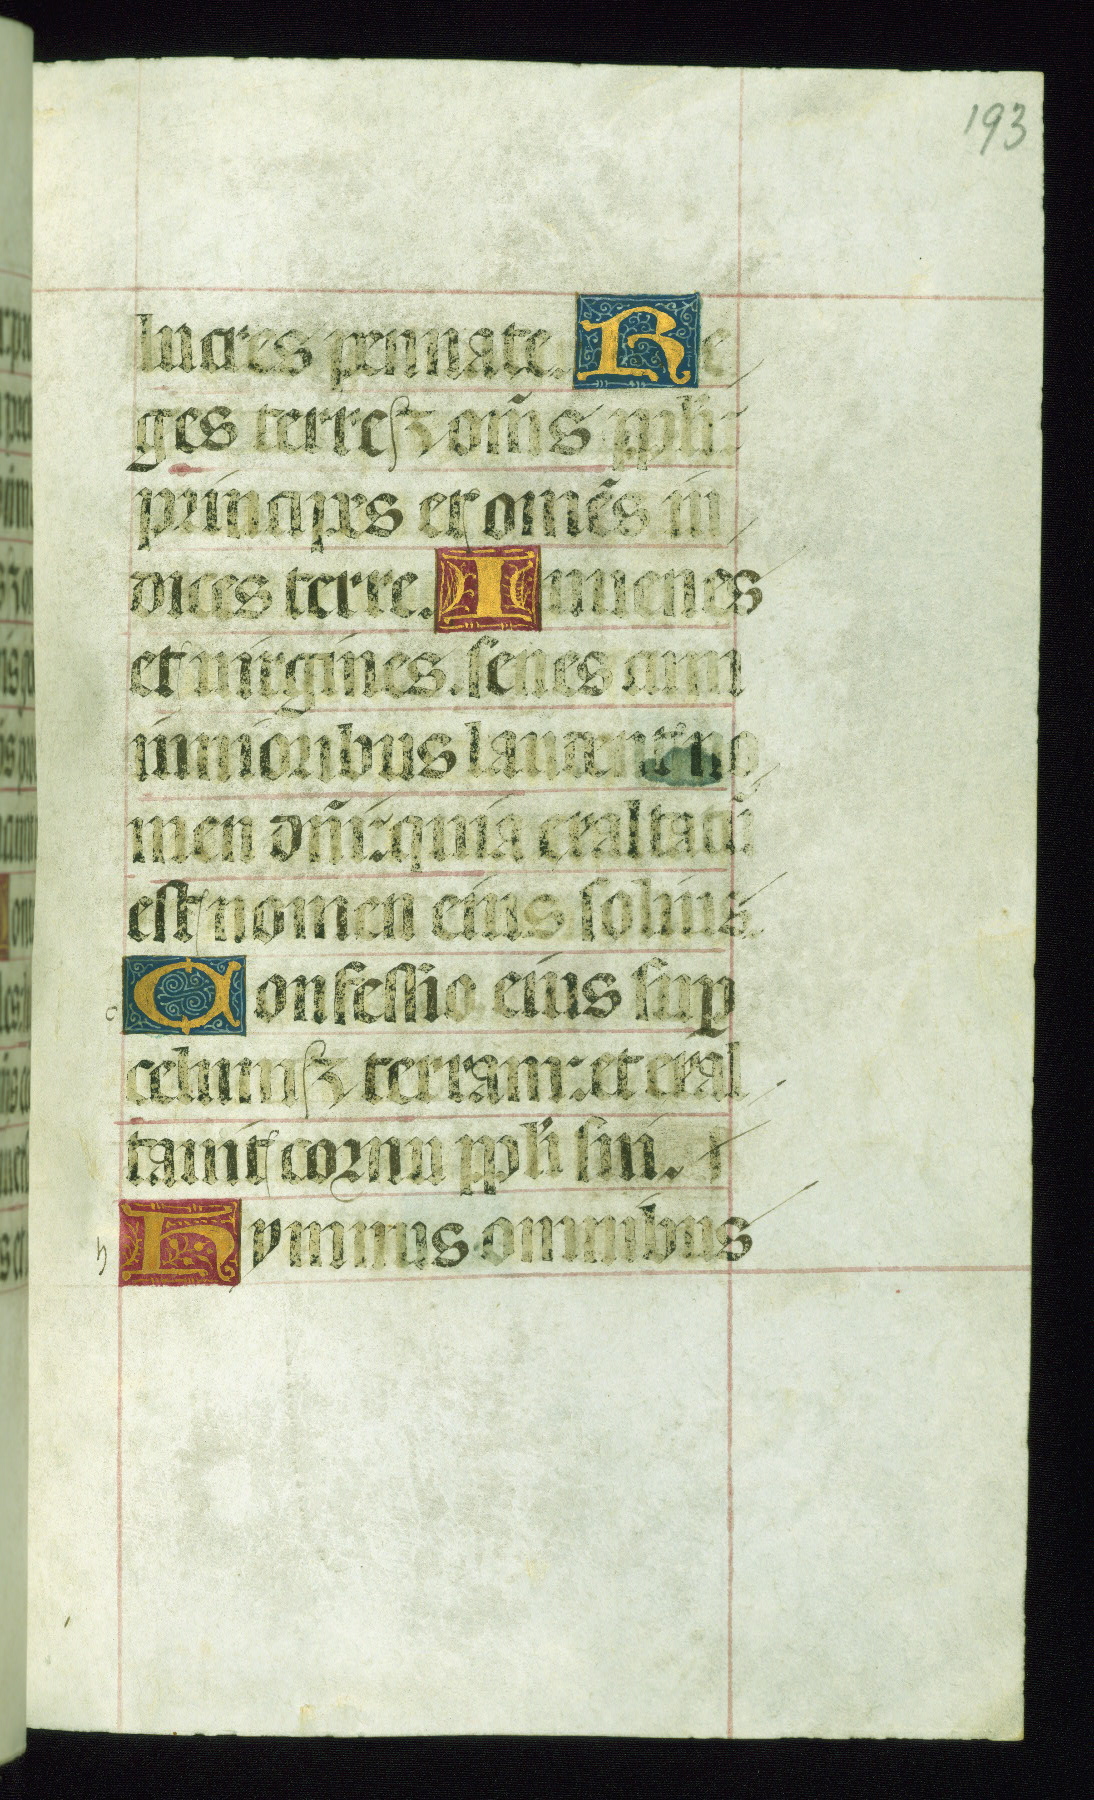 193
lucres pennate. Re
ges terre ⁊ om̄s ppl̄i:
principes et omēs iu
dices terre. Iuuenes
et uirgines. senes cum
iunioribus laudent no
men dn̄i: quia exaltatū
est nomen eius solius.
c Confessio eius sup̲
celum ⁊ terram: et exal
tauit cornu ppl̄i sui.
h Hymnus omnibus